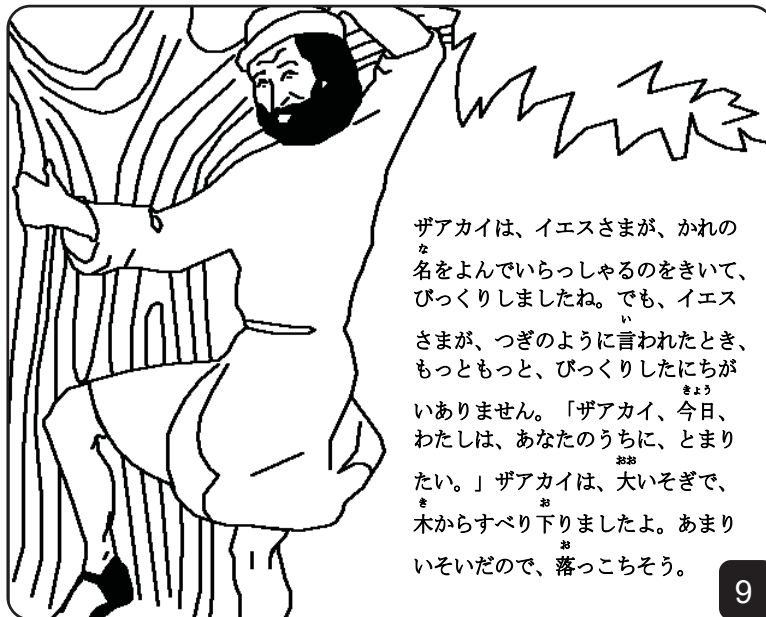 ザアカイは、イエスさまが、かれの
な
名をよんでいらっしゃるのをきいて、
びっくりしましたね。でも、イエス
い
さまが、つぎのように言われたとき、
もっともっと、びっくりしたにちが
きょう
いありません。「ザアカイ、今日、
わたしは、あなたのうちに、とまり
おお
たい。」ザアカイは、大いそぎで、
き お
木からすべり下りましたよ。あまり
お
いそいだので、落っこちそう。
9